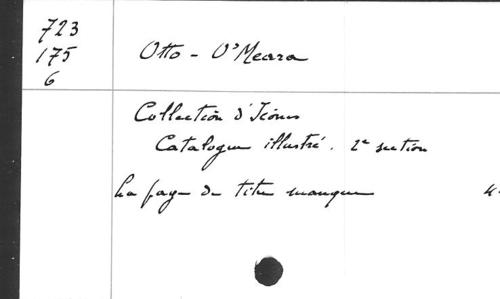 723
175
6
Otto - O'Meara
Collection d'Icônes
Catalogue illustré. 2e section
La page de titre manque